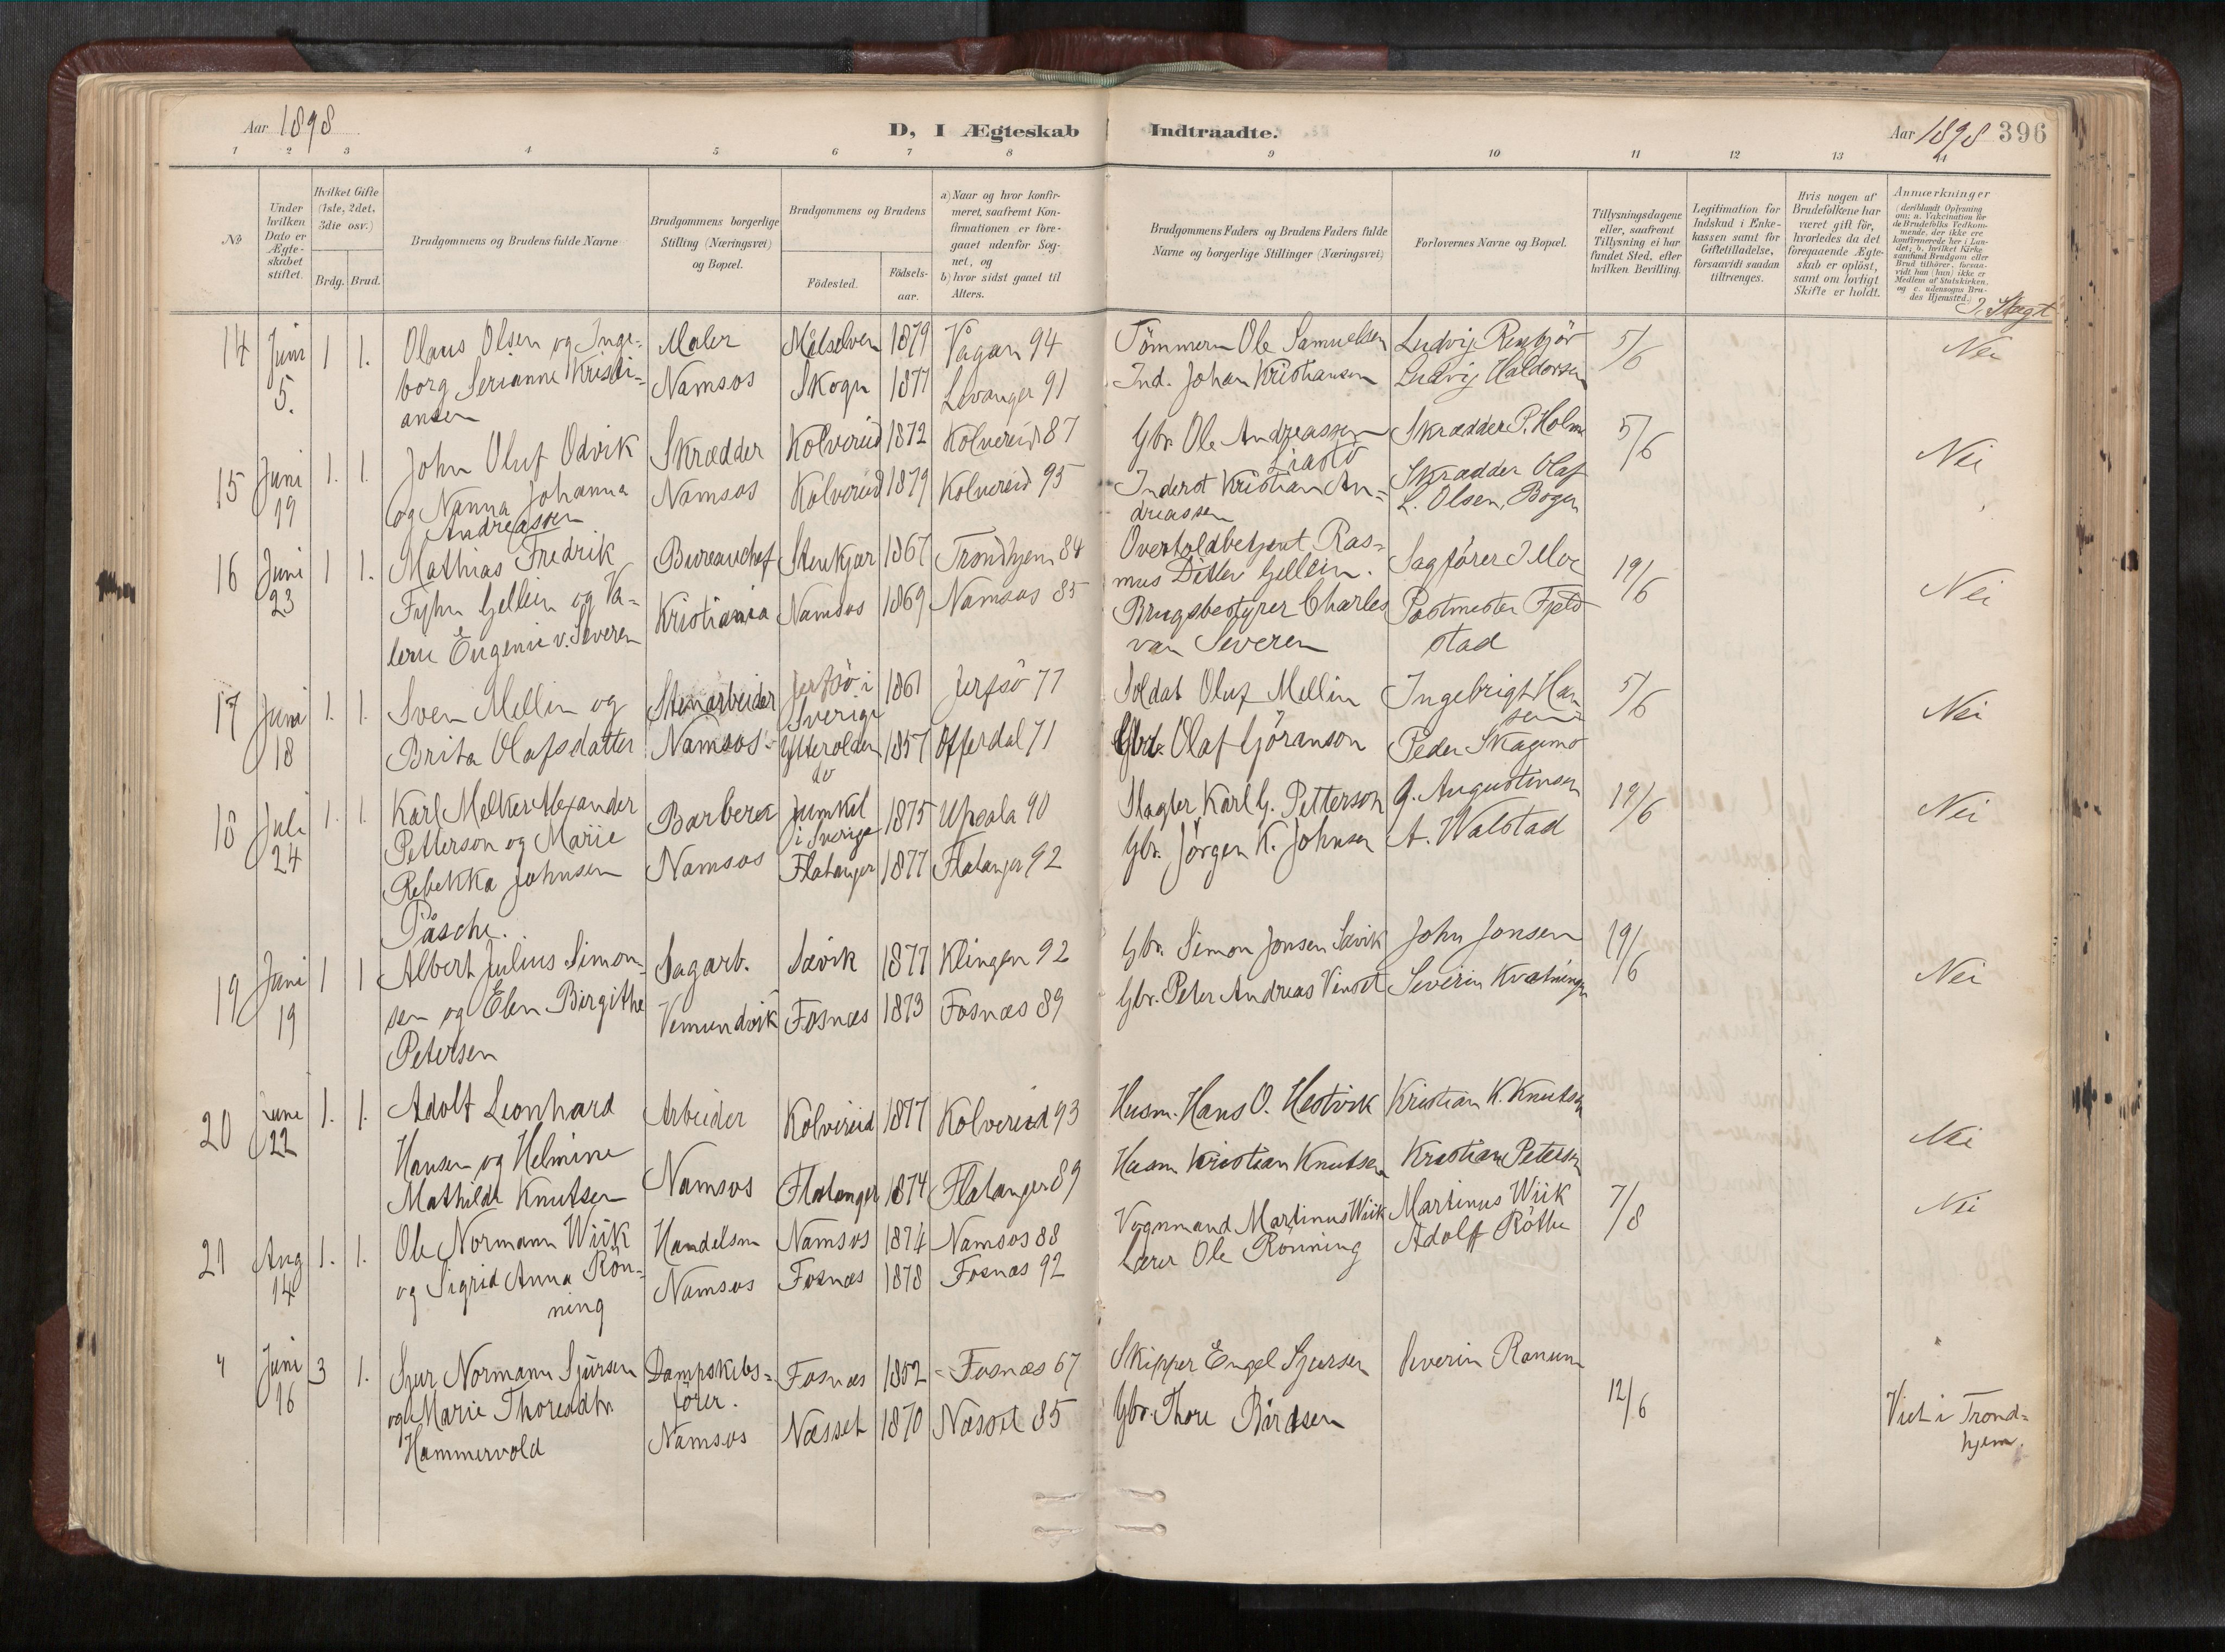 Aar 1898
D, I Ægteskab Indtraadte.
Aar 1898 396
1 2 3 4 5 6 7 8 9 10 11 12 13 14
No
Under hvilken Dato er Ægteskabet stiftet.
Hvilket Gifte (1ste, 2det, 3die osv.)
Brdg. Brud.
Brudgommens og Brudens fulde Navne
Brudgommens borgerlige Stilling (Næringsvei) og Bopæl.
Brudgommens og Brudens
Födested.
Födsels-aar.
a) Naar og hvor konfirmeret, saafremt Konfirmationen er foregaaet udenfor Sognet, og
b) hvor sidst gaaet til Alters.
Brudgommens Faders og Brudens Faders fulde Navne og borgerlige Stillinger (Næringsvei)
Forlovernes Navne og Bopæl.
Tillysningsdagene eller, saafremt Tillysning ei har fundet Sted, efter hvilken Bevilling.
Legitimation for Indskud i Enkekassen samt for Giftetilladelse, forsaavidt saadan tiltrænges.
Hvis nogen af Brudefolkene har været gift för, hvorledes da det foregaaende Ægteskab er oplöst, samt om lovligt Skifte er holdt.
Anmærkninger
(deriblandt Oplysning om: a. Vakcination for de Brudefolks Vedkommende, der ikke ere konfirmerede her i Landet; b. hvilket Kirkesamfund Brudgom eller Brud tilhörer, forsaavidt han (hun) ikke er Medlem af Statskirken, og c. udensogns Brudes Hjemsted.)
14 Juni 1 1. Olaus Olsen og Inge- Maler Målselven 1879 Vågan 94 Tömmerm Ole Samuelsen Ludvig Rembjör 5/6 Nei
5. borg Serianne Kristi- Namsos Skogn 1877 Levanger 91 Ind. Johan Kristiansen Ludvig Haldorsen
ansen
15 Juni 1. 1. John Oluf Odvik Skrædder Kolvereid 1872 Kolvereid 87 Gbr. Ole Andreassen Skrædder P. Holm 5/6 Nei
19 og Nanna Johanna Namsos Kolvereid 1879 Kolvereid 95 Inderst Kristian An- Skrædder Olaf
Andreassen dreassen L. Olsen, Bogen
16 Juni 1 1. Mathias Fredrik Bureauchef Stenkjær 1867 Trondhjem 84 Overtoldbetjent Ras- Sagförer I Moe 19/6 Nei
23 Fyhn Gellein og Va- Kristiania Namsos 1869 Namsos 85 mus Ditlev Gellein.
lerie Eugenie v. Severen Brugsbestyrer Charles Postmester Fjeld
van Severen stad
17 Juni 1. 1. Sven Mellin og Stenarbeider Jerfsö i 1861 Jerfsö 77 Soldat Oluf Mellin Ingebrigt Han 5/6 Nei
Sverige sen
18 Brita Olafsdatter Namsos Ytterolden 1857 Offerdal 71 Gbr. Olaf Göranson Peder Skagemo
do
18 Juli 1. 1. Karl Melker Alexander Barberer Jumkil 1875 Upsala 90 Slagter Karl G. Petterson G. Augustinsen 19/6 Nei
24 Petterson og Marie i Sverige Gbr. Jörgen K. Johnsen A. Walstad
Rebekka Johnsen Namsos Flatanger 1877 Flatanger 92
Påsche.
19 Juni 1 1 Albert Julius Simon- Sagarb. Sævik 1877 Klingen 92 Gbr. Simon Jonsen Sævik John Jonsen 19/6 Nei
19 sen og Elen Birgithe Vemundvik Fosnæs 1873 Fosnæs 89 Gbr. Peter Andreas Severin Kvatningen
Petersen
20 Juni 1. 1. Adolf Leonhard Arbeider Kolvereid 1877 Kolvereid 93 Husm. Hans O. Hestvik Kristian K. Knutsen Nei
22 Hansen og Helmine
Mathilde Knutsen Namsos Flatanger 1874 Flatanger 89 Husm Kristian Knutsen Kristian Petersen
21 Aug 1. 1. Ole Normann Wiik Handelsm Namsos 1874 Namsos 88 Vognmand Martinus Wiik Martinus Wiik 7/8 Nei
14 og Sigrid Anna Rön- Namsos Fosnæs 1878 Fosnæs 92 Lærer Ole Rönning Adolf Röthe
ning
4 Juni 3 1. Sjur Normann Sjursen Dampskibs- Fosnæs 1852 Fosnæs 67 Skipper Engel Sjursen Severin Ranum 12/6 Viet i Trond-
16 og Marie Thoresdtr förer. hjem.
Hammervold Namsos Næsset 1870 Næsset 85 Gbr. Thore Bårdsen